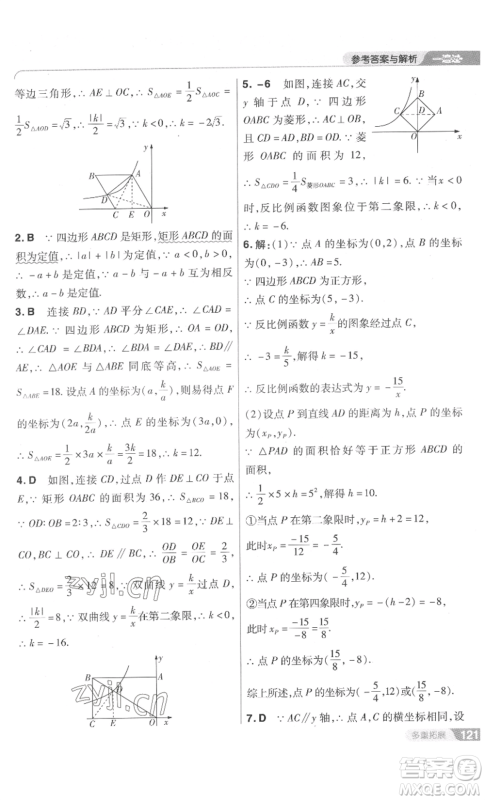 参考答案与解析
等边三角形,∴ AE⊥OC,∴ S△AOE=1/2 S△AOC=
1/2 S△AOD=√3,∴ 1/2|k|=√3,∵ k<0,∴ k=-2√3.
A
D
C
E
O
x
2. B ∵ 四边形 ABCD 是矩形,矩形 ABCD 的面
积为定值,∴ |a|+|b|为定值,∵ a<0,b>0,∴
-a+b 是定值.∵ -a+b 与 a-b 互为相反数,∴
a-b 是定值.
3. B 连接 BD,∵ AD 平分∠CAE,∴ ∠CAD=
∠DAE.∵ 四边形 ABCD 为矩形,∴ OA=OD,
∴ ∠CAD=∠BDA,∴ ∠BDA=∠DAE,∴ BD∥
AE,∴ △AOE 与△ABE 同底等高,∴ S△AOE=
S△ABE=18.设点 A 的坐标为(a, k/a),易得点 F
的坐标为(2a, k/2a),点 E 的坐标为(3a,0),
∴ S△AOE=1/2×3a×k/a=3k/2=18,∴ k=12.
4. D 如图,连接 CD,过点 D 作 DE⊥CO 于点
E,∵ 矩形 OABC 的面积为 36,∴ S△BCO=18,
∵ OD:OB=2:3,∴ S△CDO=2/3×18=12,∵
DE⊥CO,BC⊥CO,∴ DE∥BC,∴ OD/OB=OE/OC=2/3,
∴ S△DEO=2/3×12=8,∵ 双曲线 y=k/x过点 D,
∴ |k|/2=8,∵ 双曲线 y=k/x在第二象限,∴ k<0,
∴ k=-16.
y
B
A
D
C
E
O
x
5. -6 如图,连接 AC,交
y 轴于点 D,∵ 四边形
OABC 为菱形,∴ AC⊥OB,
且 CD=AD,BD=OD,∵ 菱
形 OABC 的面积为 12,
∴ S△CDO=1/4 S菱形OABC=3,∴ |k|=6.∵ k<0,
∵ 反比例函数图象位于第二象限,∴ k<0,
∴ k=-6.
6. 解:(1)∵ 点 A 的坐标为(0,2),点 B 的坐标
为(0,-3),∴ AB=5.
∵ 四边形 ABCD 为正方形,
∴ 点 C 的坐标为(5,-3).
∵ 反比例函数 y=k/x的图象经过点 C,
∴ -3=k/5,解得 k=-15,
∴ 反比例函数的表达式为 y=-15/x.
(2)设点 P 到直线 AD 的距离为 h,点 P 的坐
标为(xP,yP).
∵ △PAD 的面积恰好等于正方形 ABCD 的
面积,
∴ 1/2×5×h=5²,解得 h=10.
①当点 P 在第二象限时,yP=h+2=12,
此时 xP=-15/12=-5/4,
∴ 点 P 的坐标为(-5/4,12).
②当点 P 在第四象限时,yP=-(h-2)=-8,
此时 xP=-15/-8=15/8,
∴ 点 P 的坐标为(15/8,-8).
综上所述,点 P 的坐标为(-5/4,12)或(15/8,-8).
7. D ∵ AC∥y 轴,∴ 点 A,C 的横坐标相同,设
多重拓展
121
zyjl.cn
zyjl.cn
答案圈
MXQE.COM